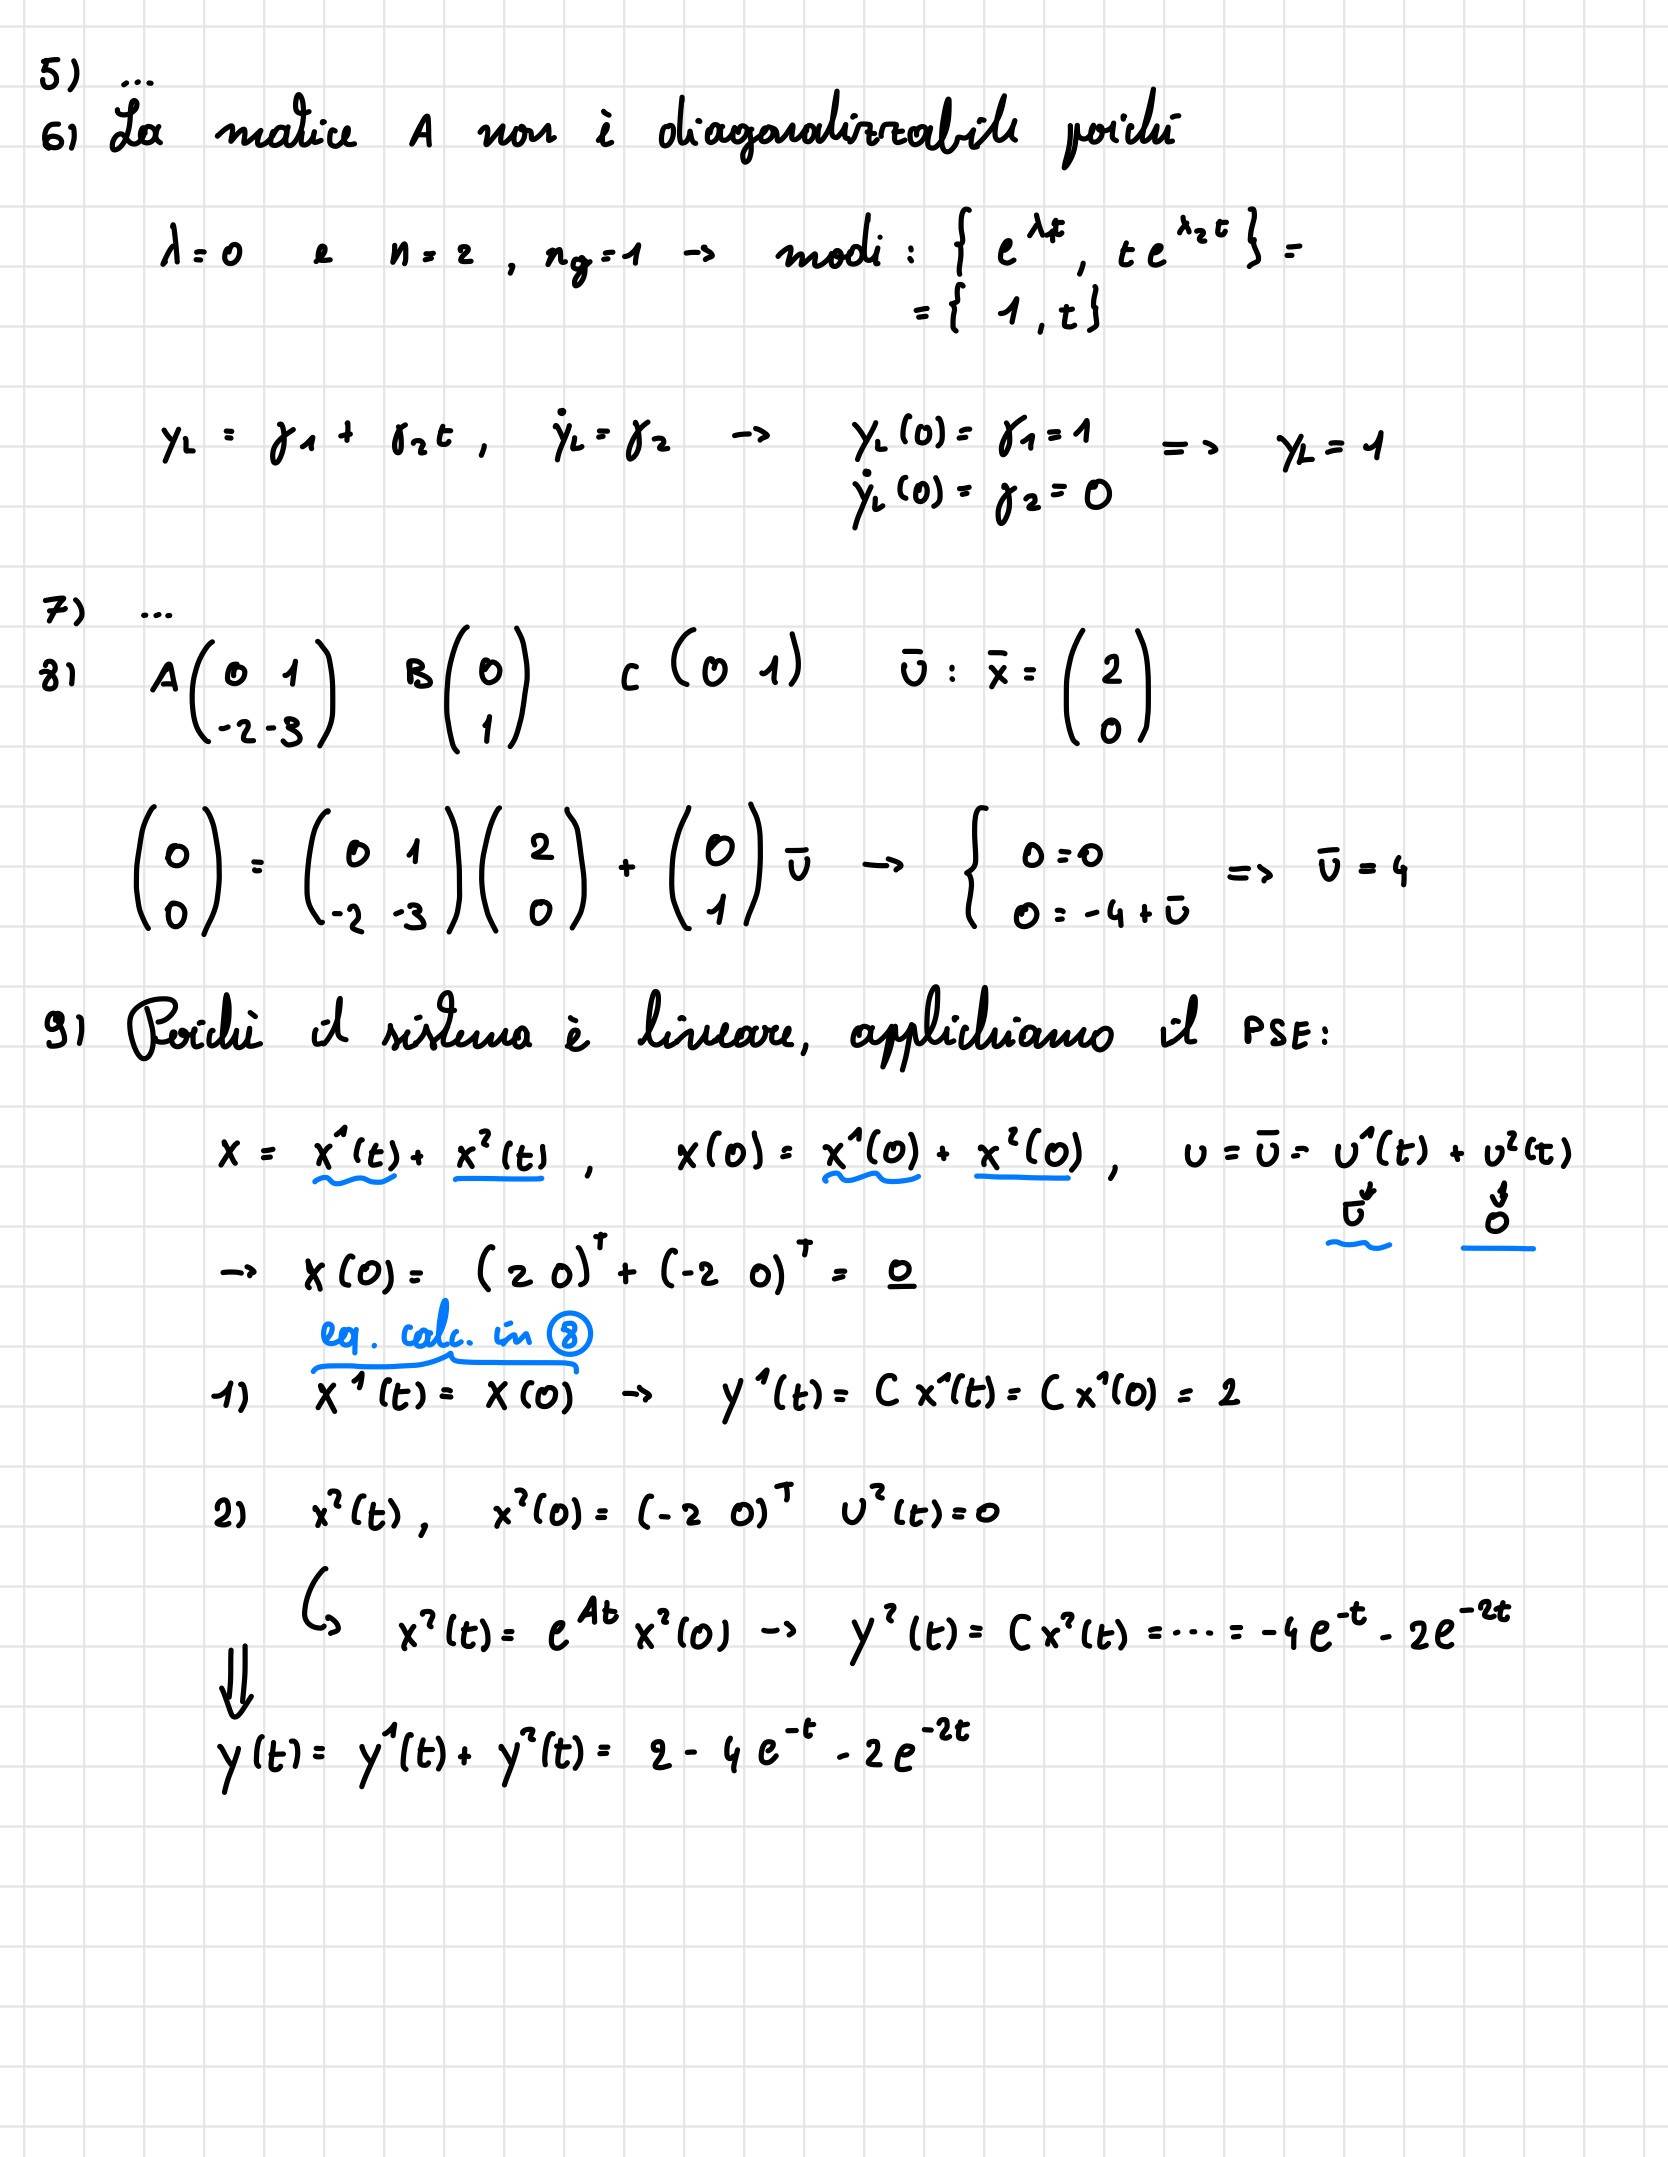 5) ...
6) La matrice A non è diagonalizzabile poiché
λ=0 e n=2, ng=1 → modi: { e^λ₁t, t e^λ₂t } =
= { 1, t }
y_L = γ₁ + γ₂t, ẏ_L = γ₂ → y_L(0) = γ₁ = 1 => y_L = 1
ẏ_L(0) = γ₂ = 0
7) ...
8) A (0 1; -2 -3) B (0; 1) C (0 1) ū : x̄ = (2; 0)
(0; 0) = (0 1; -2 -3) (2; 0) + (0; 1) ū → { 0=0; 0 = -4 + ū => ū = 4
9) Poiché il sistema è lineare, applichiamo il PSE:
x = x¹(t) + x²(t), x(0) = x¹(0) + x²(0), u = ū = u¹(t) + u²(t)
↓ ū ↓ 0
→ x(0) = (2 0)ᵀ + (-2 0)ᵀ = 0
eq. calc. in ⑧
1) x¹(t) = x(0) → y¹(t) = C x¹(t) = C x¹(0) = 2
2) x²(t), x²(0) = (-2 0)ᵀ u²(t) = 0
↳ x²(t) = e^At x²(0) → y²(t) = C x²(t) = ... = -4e^-t - 2e^-2t
⇓
y(t) = y¹(t) + y²(t) = 2 - 4e^-t - 2e^-2t